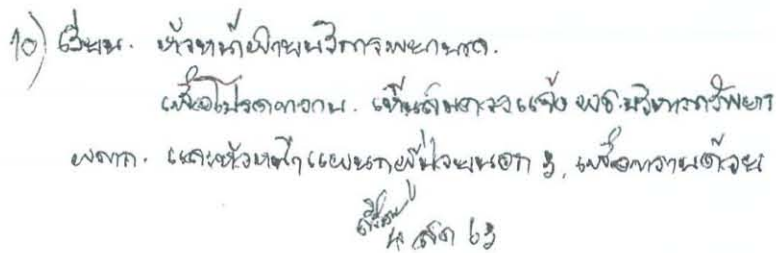 10) เรียน. หัวหน้าฝ่ายบริการพยาบาล.
เพื่อโปรดทราบ. เห็นสมควรแจ้ง ผช.บริหารทรัพยา
และหัวหน้าแผนกผู้ป่วยนอก 3, เพื่อทราบด้วย
63